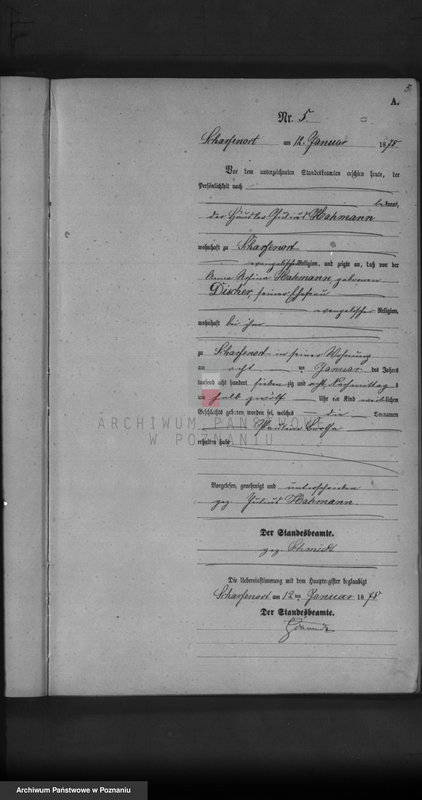 5
A.
Nr. 5.
Scharfenort am 12. Januar 1878
Vor dem unterzeichneten Standesbeamten erschien heute, der
Persönlichkeit nach
bekannt,
der Häusler Julius Hahmann
wohnhaft zu Scharfenort
evangelischer Religion, und zeigte an, daß von der
Anna Rosina Hahmann geborenen
Discher, seiner Ehefrau
evangelischer Religion,
wohnhaft bei ihm
zu Scharfenort in seiner Wohnung
am acht ten Januar des Jahres
tausend acht hundert siebenzig und acht, Nachmittag s
um halb zwölf Uhr ein Kind weiblichen
Geschlechts geboren worden sei, welches die Vornamen
Pauline
erhalten habe
ARCHIWUM PAŃSTWOWE
W POZNANIU
Vorgelesen, genehmigt und unterschrieben
gez. Julius Hahmann
Der Standesbeamte.
gez. Schmidt
Die Uebereinstimmung mit dem Hauptregister beglaubigt
Scharfenort am 12 ten Januar 1878
Der Standesbeamte.
Schmidt
Archiwum Państwowe w Poznaniu